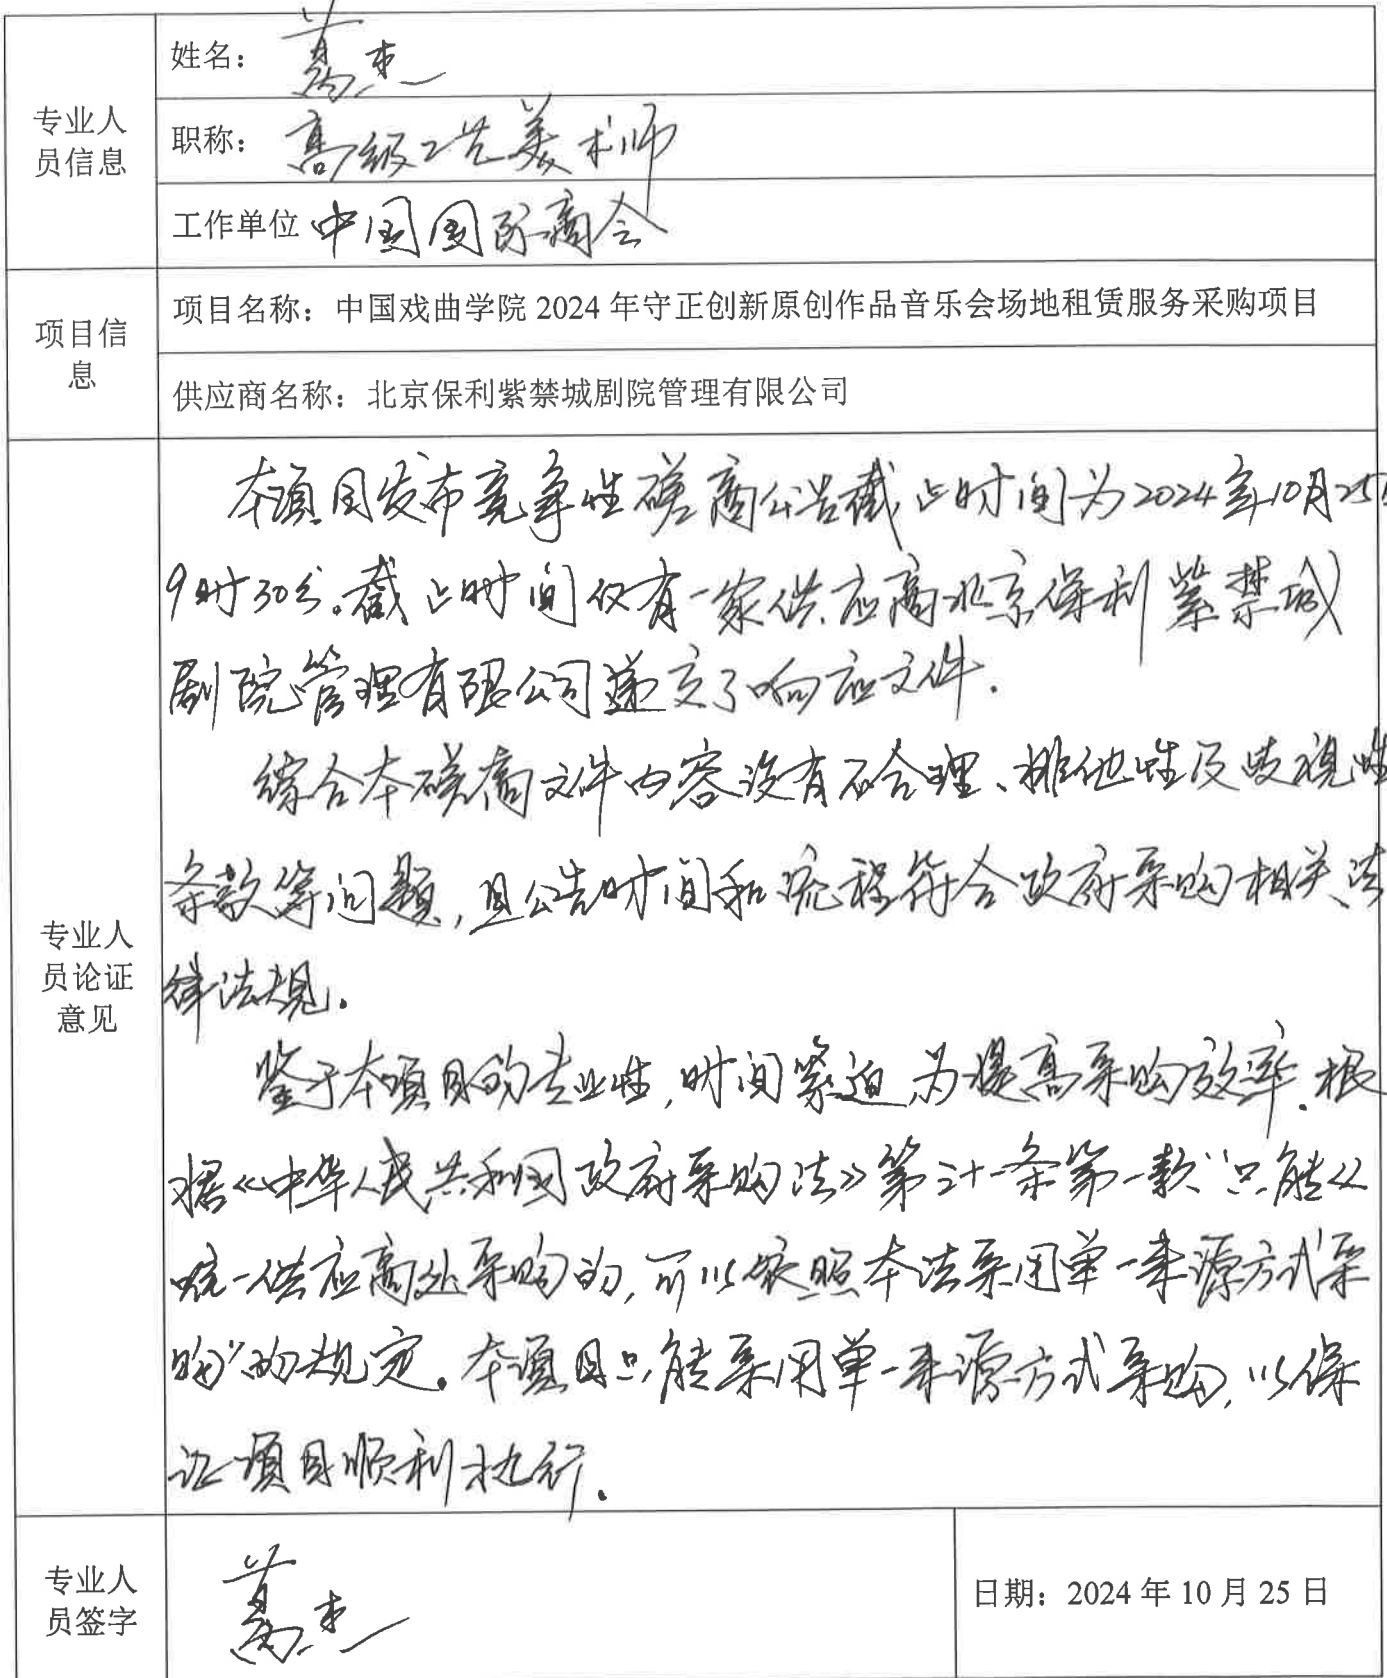 专业人员信息
姓名：葛杰
职称：高级工艺美术师
工作单位 中国国际商会
项目信息
项目名称：中国戏曲学院 2024 年守正创新原创作品音乐会场地租赁服务采购项目
供应商名称：北京保利紫禁城剧院管理有限公司
专业人员论证意见
本项目发布竞争性磋商公告截止时间为2024年10月25日
9时30分。截止时间仅有一家供应商北京保利紫禁城
剧院管理有限公司递交了响应文件.
综合本磋商文件内容没有不合理、排他性及歧视性
条款等问题,且公告时间和流程符合政府采购相关法
律法规.
鉴于本项目的专业性,时间紧迫,为提高采购效率.根
据《中华人民共和国政府采购法》第三十一条第一款“只能从
唯一供应商处采购的,可以依照本法采用单一来源方式采
购”的规定。本项目只能采用单一来源方式采购,以保
证项目顺利执行.
专业人员签字
葛杰
日期：2024 年 10 月 25 日